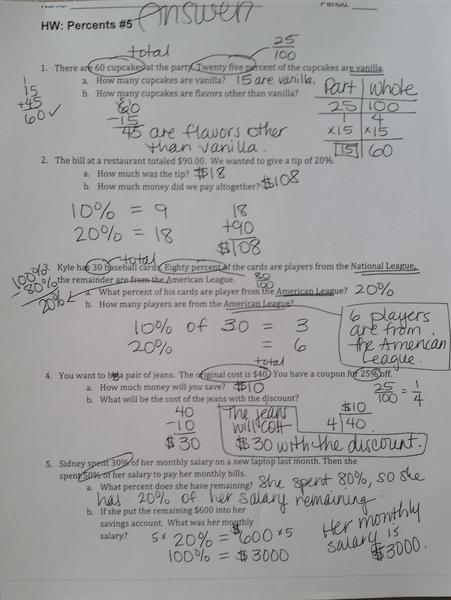 Answer
HW: Percents #5
total
25/100
1. There are 60 cupcakes at the party. Twenty five percent of the cupcakes are vanilla.
a. How many cupcakes are vanilla? 15 are vanilla.
b. How many cupcakes are flavors other than vanilla?
1
15
+45
60 ✓
60
-15
45 are flavors other
than vanilla.
Part | Whole
25 | 100
1 | 4
×15 | ×15
15 | 60
2. The bill at a restaurant totaled $90.00. We wanted to give a tip of 20%.
a. How much was the tip? $18
b. How much money did we pay altogether? $108
10% = 9
20% = 18
18
+90
$108
total
3. Kyle has 30 baseball cards. Eighty percent of the cards are players from the National League,
the remainder are from the American League.
80/100
100%
-80%
20%
a. What percent of his cards are player from the American League? 20%
b. How many players are from the American League?
10% of 30 = 3
20% = 6
6 players
are from
the American
League.
total
4. You want to buy a pair of jeans. The original cost is $40. You have a coupon for 25% off.
a. How much money will you save? $10
b. What will be the cost of the jeans with the discount?
25/100 = 1/4
40
-10
$30
The jeans
will cost
$30 with the discount.
$10
4 | 40
5. Sidney spent 30% of her monthly salary on a new laptop last month. Then she
spent 50% of her salary to pay her monthly bills.
a. What percent does she have remaining? She spent 80%, so she
has 20% of her salary remaining.
b. If she put the remaining $600 into her
savings account. What was her monthly
salary?
5× 20% = $600 ×5
100% = $3000
Her monthly
salary is
$3000.